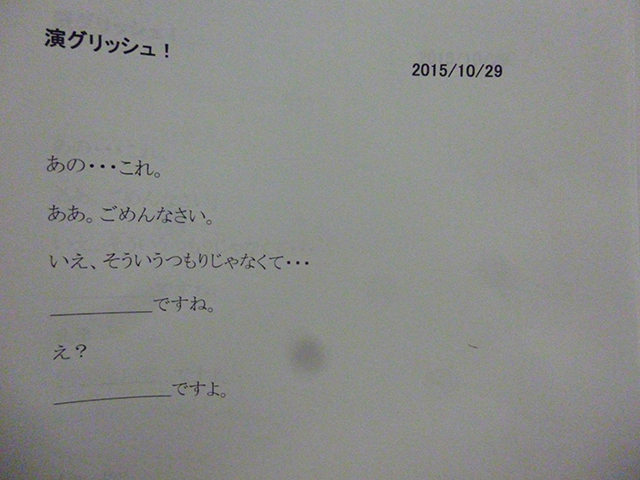 演グリッシュ！
2015/10/29
あの・・・これ。
ああ。ごめんなさい。
いえ、そういうつもりじゃなくて・・・
＿＿＿＿＿ですね。
え？
＿＿＿＿＿＿ですよ。